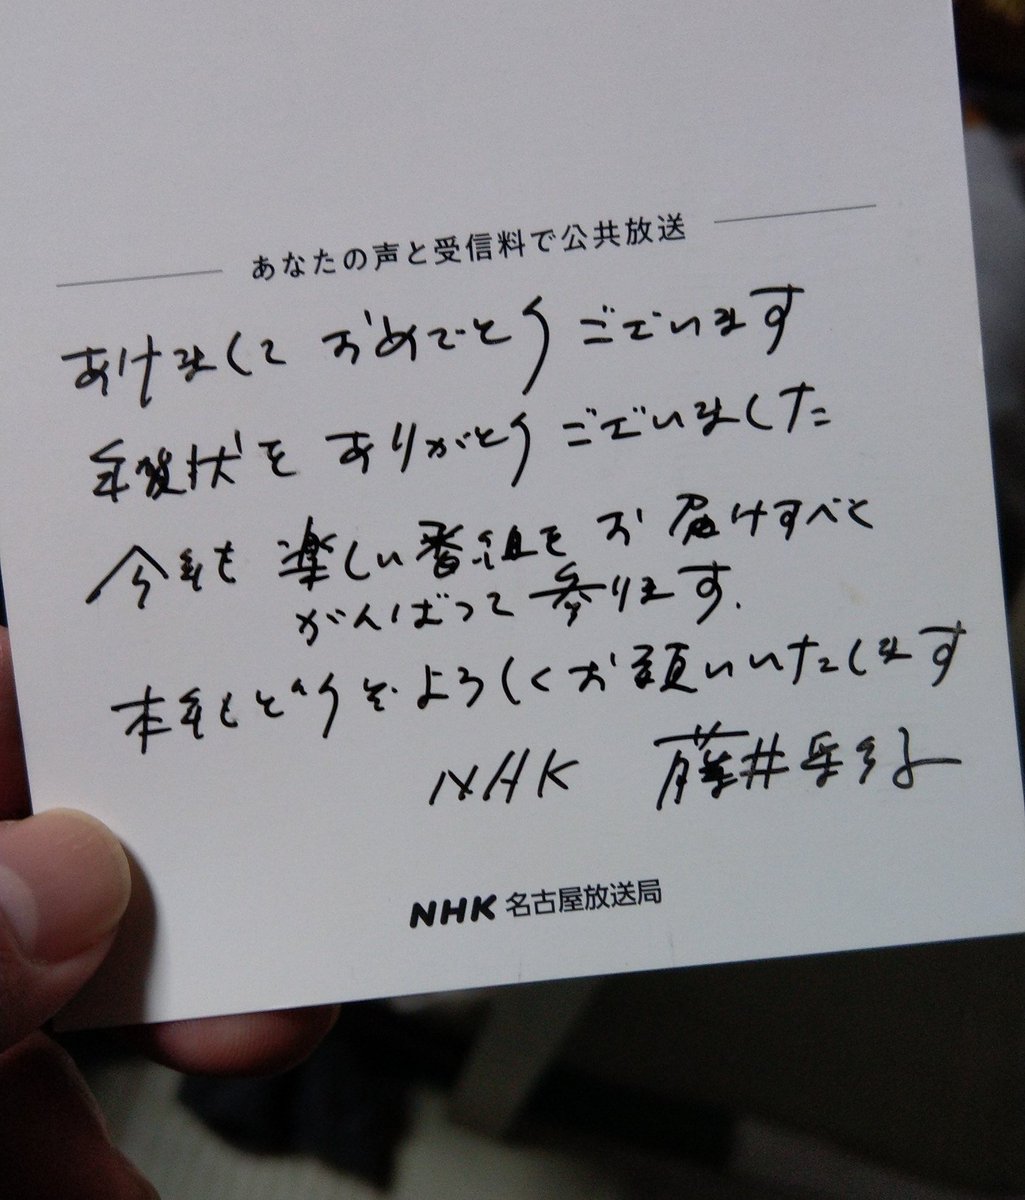 あなたの声と受信料で公共放送
あけまして おめでとう ございます
年賀状を ありがとう ございました
今年も 楽しい番組を お届けすべく
がんばって参ります.
本年もどうぞよろしくお願いいたします
NHK 藤井彩子
NHK 名古屋放送局